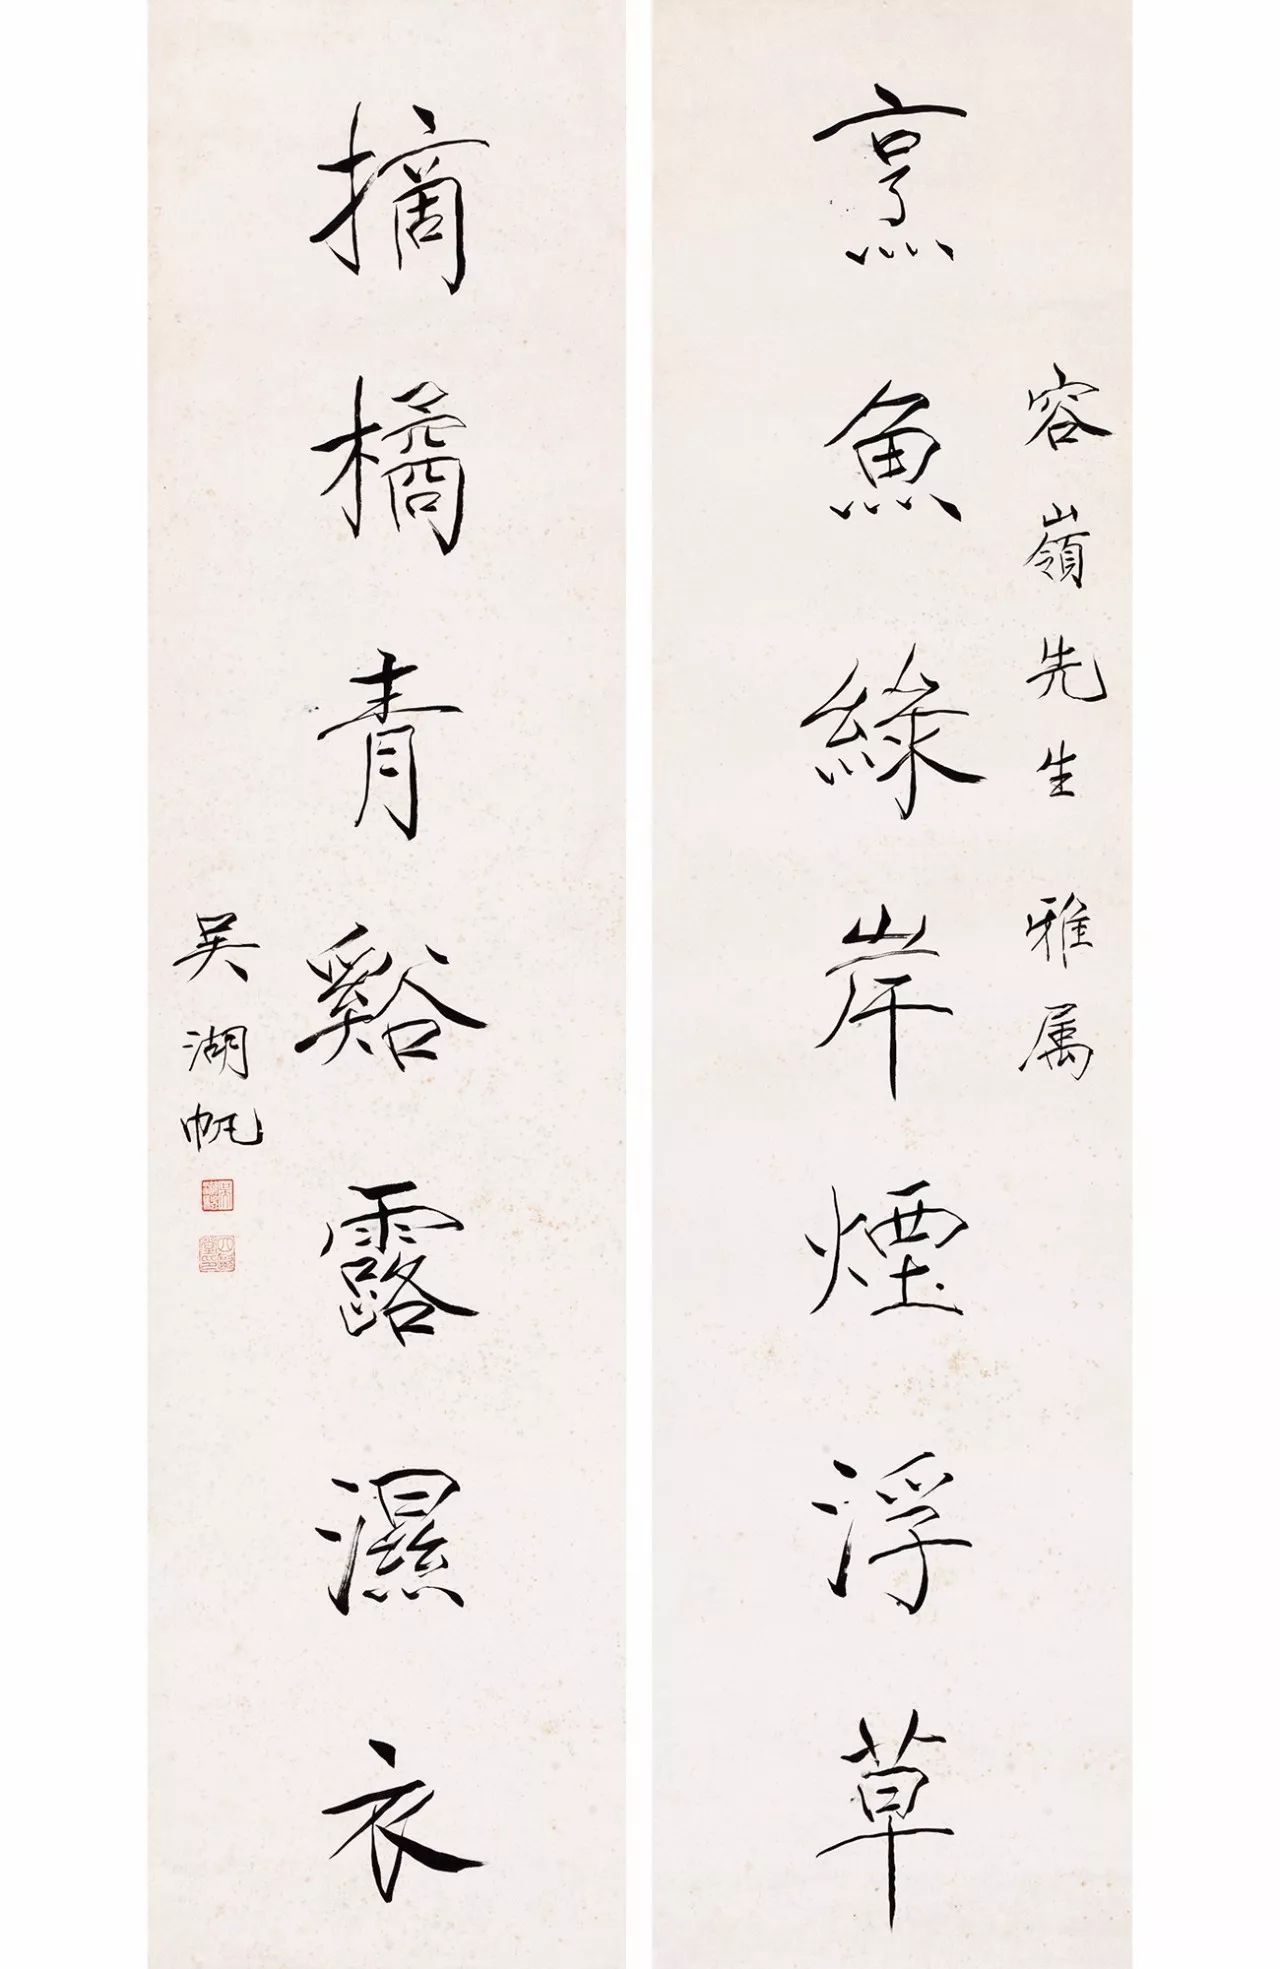 烹魚綠岸煙浮草
容嶺先生雅属
摘橘青谿露濕衣
吳湖帆